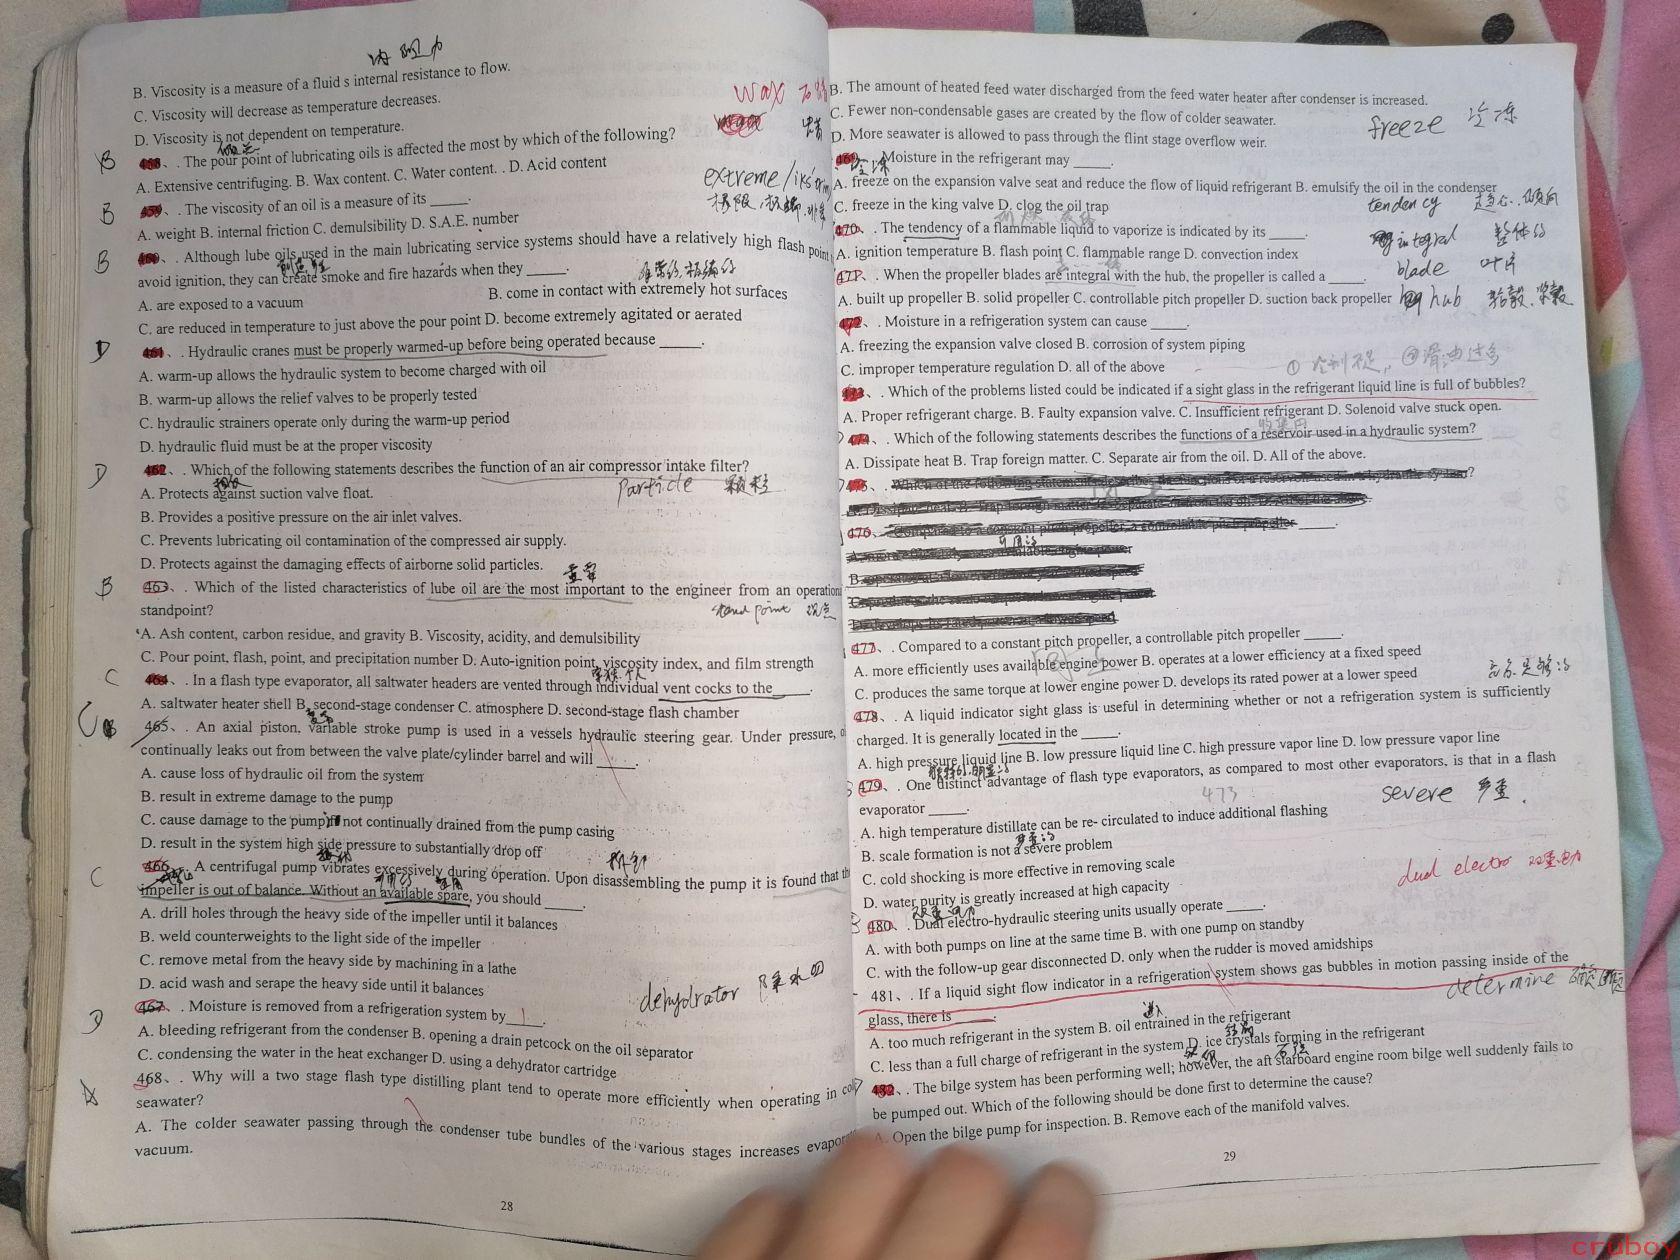 内部阻力
B. Viscosity is a measure of a fluid s internal resistance to flow.
C. Viscosity will decrease as temperature decreases.
D. Viscosity is not dependent on temperature.
wax 石蜡
B 458、. The pour point of lubricating oils is affected the most by which of the following?
A. Extensive centrifuging. B. Wax content. C. Water content. . D. Acid content
extreme
B 459、. The viscosity of an oil is a measure of its _____.
A. weight B. internal friction C. demulsibility D. S.A.E. number
B 460、. Although lube oils used in the main lubricating service systems should have a relatively high flash point
avoid ignition, they can create smoke and fire hazards when they _____.
A. are exposed to a vacuum B. come in contact with extremely hot surfaces
C. are reduced in temperature to just above the pour point D. become extremely agitated or aerated
D 461、. Hydraulic cranes must be properly warmed-up before being operated because _____.
A. warm-up allows the hydraulic system to become charged with oil
B. warm-up allows the relief valves to be properly tested
C. hydraulic strainers operate only during the warm-up period
D. hydraulic fluid must be at the proper viscosity
D 462、. Which of the following statements describes the function of an air compressor intake filter?
A. Protects against suction valve float.
particle 颗粒
B. Provides a positive pressure on the air inlet valves.
C. Prevents lubricating oil contamination of the compressed air supply.
D. Protects against the damaging effects of airborne solid particles.
重要
B 463、. Which of the listed characteristics of lube oil are the most important to the engineer from an operation
standpoint?
stand point 观点
A. Ash content, carbon residue, and gravity B. Viscosity, acidity, and demulsibility
C. Pour point, flash, point, and precipitation number D. Auto-ignition point, viscosity index, and film strength
C 464、. In a flash type evaporator, all saltwater headers are vented through individual vent cocks to the_____.
A. saltwater heater shell B. second-stage condenser C. atmosphere D. second-stage flash chamber
C 465、. An axial piston, variable stroke pump is used in a vessels hydraulic steering gear. Under pressure, o
continually leaks out from between the valve plate/cylinder barrel and will _____.
A. cause loss of hydraulic oil from the system
B. result in extreme damage to the pump
C. cause damage to the pump if not continually drained from the pump casing
D. result in the system high side pressure to substantially drop off
拆卸
C 466、. A centrifugal pump vibrates excessively during operation. Upon disassembling the pump it is found that th
impeller is out of balance. Without an available spare, you should _____.
A. drill holes through the heavy side of the impeller until it balances
B. weld counterweights to the light side of the impeller
C. remove metal from the heavy side by machining in a lathe
D. acid wash and serape the heavy side until it balances
dehydrator
D 467、. Moisture is removed from a refrigeration system by_____.
A. bleeding refrigerant from the condenser B. opening a drain petcock on the oil separator
C. condensing the water in the heat exchanger D. using a dehydrator cartridge
A 468、. Why will a two stage flash type distilling plant tend to operate more efficiently when operating in col
seawater?
A. The colder seawater passing through the condenser tube bundles of the various stages increases evapor
vacuum.
28
B. The amount of heated feed water discharged from the feed water heater after condenser is increased.
C. Fewer non-condensable gases are created by the flow of colder seawater.
freeze 冷冻
D. More seawater is allowed to pass through the flint stage overflow weir.
469、. Moisture in the refrigerant may _____.
A. freeze on the expansion valve seat and reduce the flow of liquid refrigerant B. emulsify the oil in the condenser
C. freeze in the king valve D. clog the oil trap
tendency
470、. The tendency of a flammable liquid to vaporize is indicated by its _____.
integral 整体的
A. ignition temperature B. flash point C. flammable range D. convection index
blade 叶片
471、. When the propeller blades are integral with the hub, the propeller is called a _____.
A. built up propeller B. solid propeller C. controllable pitch propeller D. suction back propeller
hub
472、. Moisture in a refrigeration system can cause _____.
A. freezing the expansion valve closed B. corrosion of system piping
C. improper temperature regulation D. all of the above
473、. Which of the problems listed could be indicated if a sight glass in the refrigerant liquid line is full of bubbles?
A. Proper refrigerant charge. B. Faulty expansion valve. C. Insufficient refrigerant D. Solenoid valve stuck open.
474、. Which of the following statements describes the functions of a reservoir used in a hydraulic system?
A. Dissipate heat B. Trap foreign matter. C. Separate air from the oil. D. All of the above.
475、.
476、. Compared to a constant pitch propeller, a controllable pitch propeller _____.
477、. Compared to a constant pitch propeller, a controllable pitch propeller _____.
A. more efficiently uses available engine power B. operates at a lower efficiency at a fixed speed
C. produces the same torque at lower engine power D. develops its rated power at a lower speed
478、. A liquid indicator sight glass is useful in determining whether or not a refrigeration system is sufficiently
charged. It is generally located in the _____.
A. high pressure liquid line B. low pressure liquid line C. high pressure vapor line D. low pressure vapor line
479、. One distinct advantage of flash type evaporators, as compared to most other evaporators, is that in a flash
evaporator _____.
473
severe 严重
A. high temperature distillate can be re- circulated to induce additional flashing
B. scale formation is not a severe problem
C. cold shocking is more effective in removing scale
dual electro 双重电力
D. water purity is greatly increased at high capacity
480、. Dual electro-hydraulic steering units usually operate _____.
A. with both pumps on line at the same time B. with one pump on standby
C. with the follow-up gear disconnected D. only when the rudder is moved amidships
481、. If a liquid sight flow indicator in a refrigeration system shows gas bubbles in motion passing inside of the
determine
glass, there is _____.
A. too much refrigerant in the system B. oil entrained in the refrigerant
C. less than a full charge of refrigerant in the system D. ice crystals forming in the refrigerant
482、. The bilge system has been performing well; however, the aft starboard engine room bilge well suddenly fails to
be pumped out. Which of the following should be done first to determine the cause?
A. Open the bilge pump for inspection. B. Remove each of the manifold valves.
29
cruboy